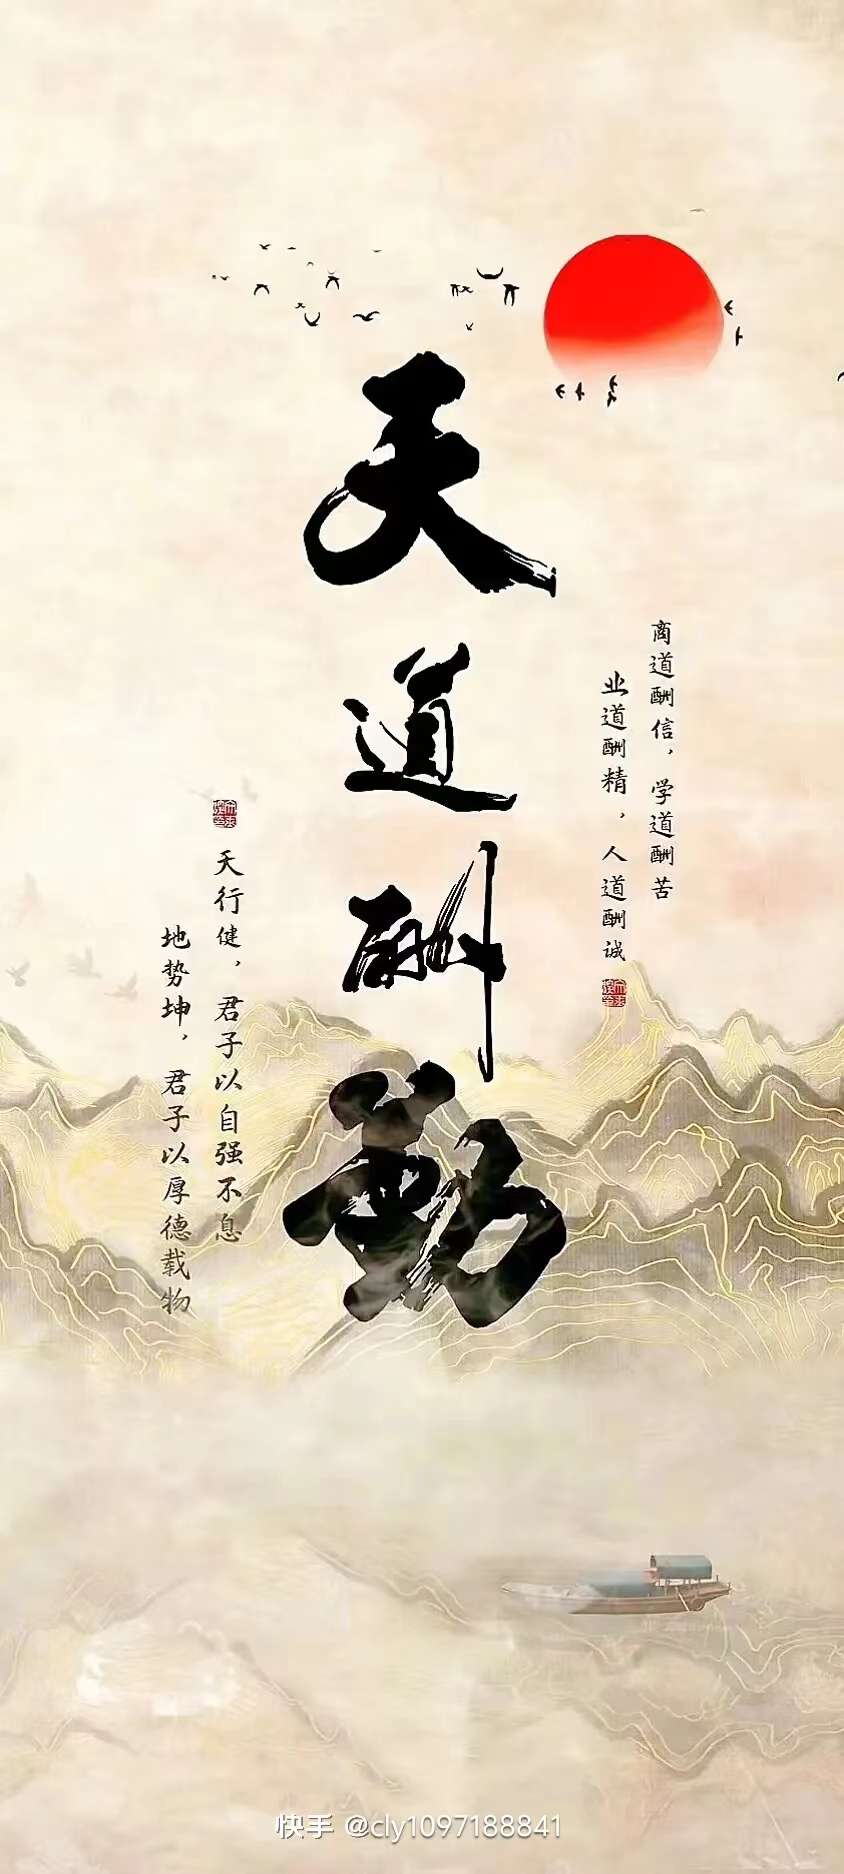 天道酬勤
商道酬信，学道酬苦
业道酬精，人道酬诚
天行健，君子以自强不息
地势坤，君子以厚德载物
快手 @cly1097188841